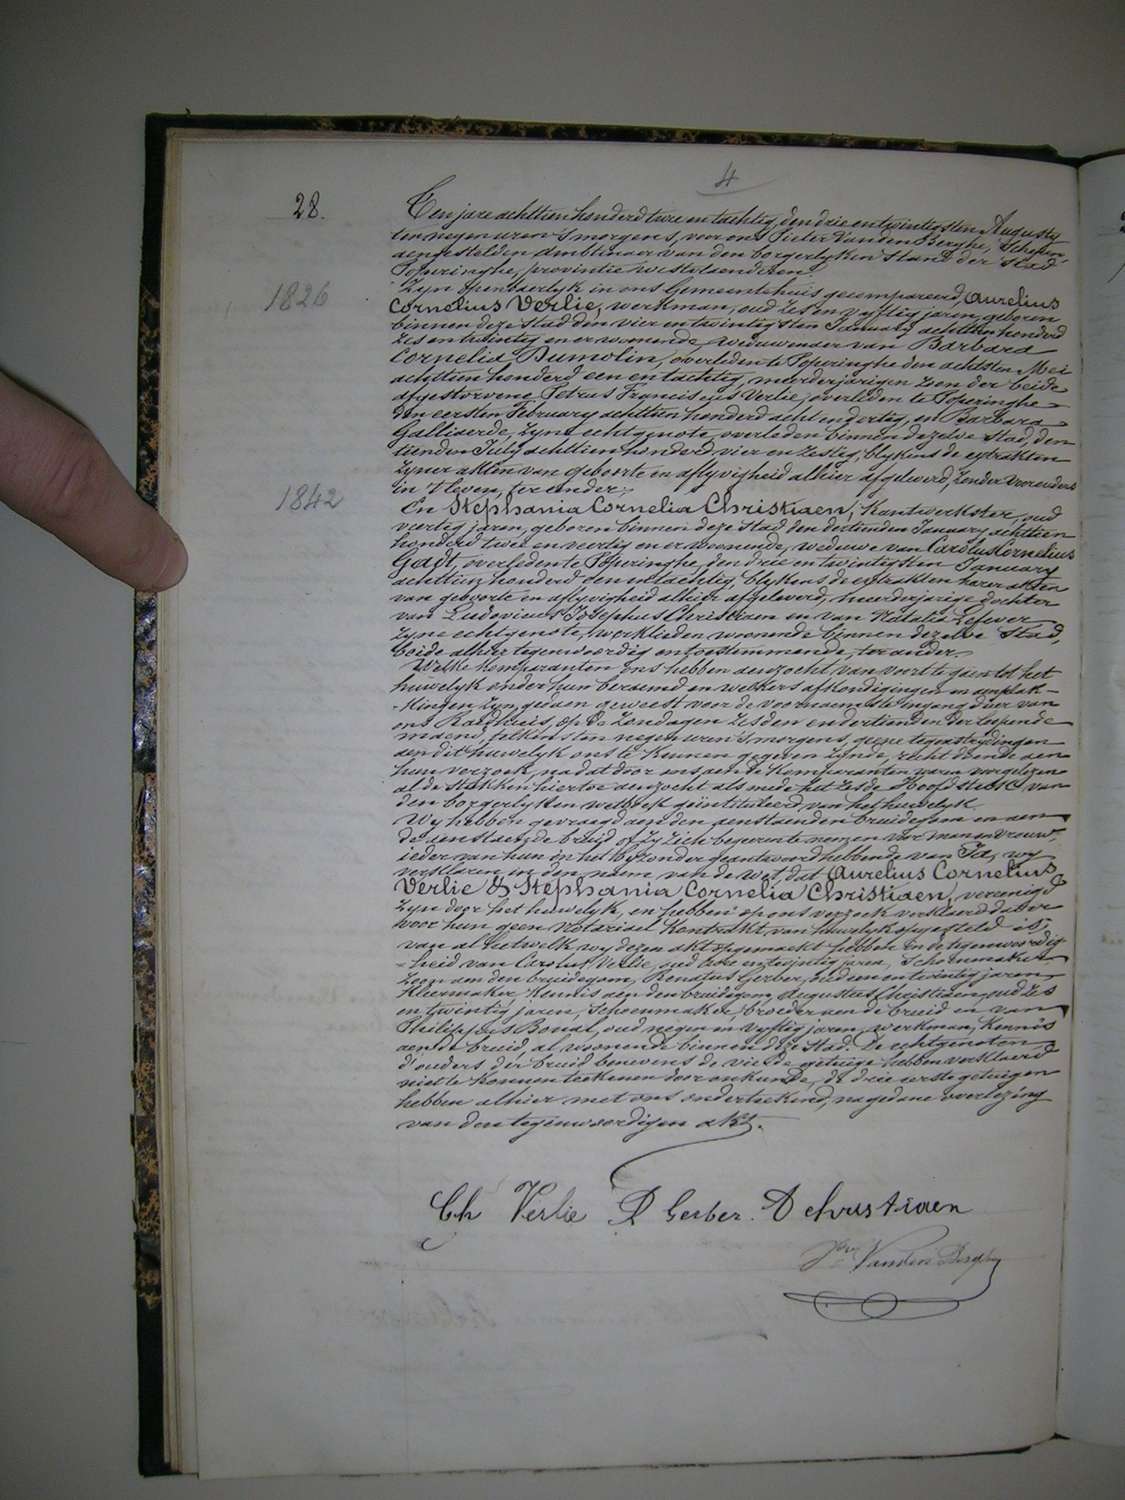 4
28.
Ten jare achttien honderd twee en tachtig, den drie en twintigsten Augusty
ten negen uren 's morgens, voor ons Pieter Vanden Berghe, Schepen,
aengestelden Ambtenaer van den borgerlyken stand der stad
Poperinghe, provintie westvlaenderen
1826
Zyn openbaerlyk in ons Gemeentehuis gecompareerd, Aurelius
Cornelius Verlie, werkman, oud zes en vyftig jaren, geboren
binnen deze stad den vier en twintigsten January achttien honderd
zes en twintig en er woonende, weduwenaer van Barbara
Cornelia Dumolin, overleden te Poperinghe den achtsten Mei
achttien honderd een en tachtig, meerderjarigen zoon der beide
afgestorvene Petrus Franciscus Verlie, overleden te Poperinghe
den eersten February achttien honderd acht en dertig, en Barbara
Galliaerde, zyne echtgenote, overleden binnen dezelve stad, den
tienden July achttien honderd vier en zestig, blykens de extrakten
zyner akten van geboorte en aflyvigheid alhier afgeleverd, zonder voorouders
in 't leven, ter eender;
1842
En Stephania Cornelia Christiaen, Kantwerkster, oud
veertig jaren, geboren binnen deze stad den dertienden January achttien
honderd twee en veertig en er woonende, weduwe van Carolus Cornelius
overleden te Poperinghe, den drie en twintigsten January
achttien honderd een en tachtig, blykens de extrakten harer akten
van geboorte en aflyvigheid alhier afgeleverd, meerderjarige dochter
van Ludovicus Josephus Christiaen en van Natalia Lefever
zyne echtgenote, werklieden woonende binnen dezelve stad,
beide alhier tegenwoordig en toestemmende, ter ander.
Welke komparanten ons hebben aenzocht van voort te gaen tot het
huwelyk onder hun beraemd en welkers afkondigingen en aenplak-
-kingen zyn gedaen geweest voor de voornaemste ingangdeur van
ons Raedhuis, op de zondagen zesden en dertienden der loopende
maend, telkens ten negen uren 's morgens, geene tegenstrydingen
aen dit huwelyk ons te kennen gegeven zynde, recht doende aen
hun verzoek, na dat door ons aen de komparanten waren voorgelezen
al de stukken hiertoe aenzocht als mede het zesde Hoofdstuk van
den borgerlyken wetboek geïntituleerd, van het huwelyk
Wy hebben gevraegd aen den aenstaenden bruidegom en aen
de aenstaende bruid of zy zich begeeren te nemen voor man en vrouw,
ieder van hun in het byzonder geantwoord hebbende van Ja, wy
verklaren in den naem van de wet, dat Aurelius Cornelius
Verlie & Stephania Cornelia Christiaen, vereenigd
zyn door het huwelyk, en hebben op ons verzoek verklaerd dat er
voor hun geen Notarieel Kontrakt van huwelyk opgesteld is;
van al hetwelk wy dezen akt opgemaekt hebben in de tegenwoordig-
-heid van Carolus Verlie, oud twee en twintig jaren, Schoenmaker
zoon aen den bruidegom, Renatus Gerber, oud een en twintig jaren
Kleermaker, kennis aen den bruidegom, Augustus Christiaen, oud zes
en twintig jaren, Schoenmaker, broeder aen de bruid en van
Philippus oud negen en vyftig jaren, werkman, Kennis
aen de bruid, al woonende binnen deze stad. De echtgenoten
d'ouders der bruid benevens de vierde getuige hebben verklaerd
niet te konnen teekenen door onkunde, de drie eerste getuigen
hebben alhier met ons onderteekend, na gedane overlezing
van den tegenwoordigen akt.
Ch Verlie R Gerber. A christiaen
Vanden Berghe